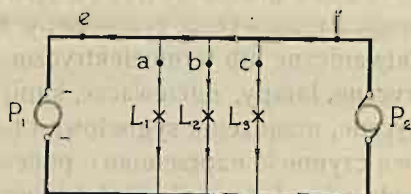 e f
a b c
P₁ L₁ L₂ L₃ P₂